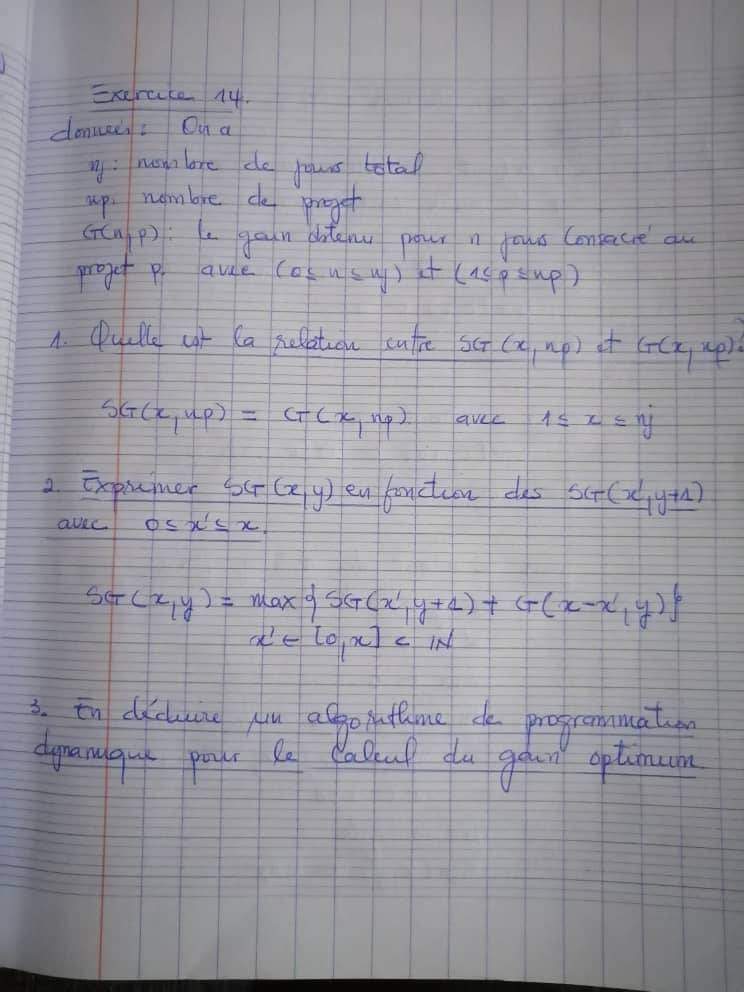 Exercice 14.
données : On a
nj : nombre de jours total
np : nombre de projet
G(n,p) : le gain obtenu pour n jours consacré au
projet p, avec (0 ≤ n ≤ nj) et (1 ≤ p ≤ np)
1. Quelle est la relation entre SG(x,np) et G(x,np)?
SG(x,np) = G(x,np) avec 1 ≤ x ≤ nj
2. Exprimer SG(x,y) en fonction des SG(x',y+1)
avec 0 ≤ x' ≤ x.
SG(x,y) = max { SG(x',y+1) + G(x-x',y) }
x' ∈ [0,x] ⊂ IN
3. En déduire un algorithme de programmation
dynamique pour le calcul du gain optimum